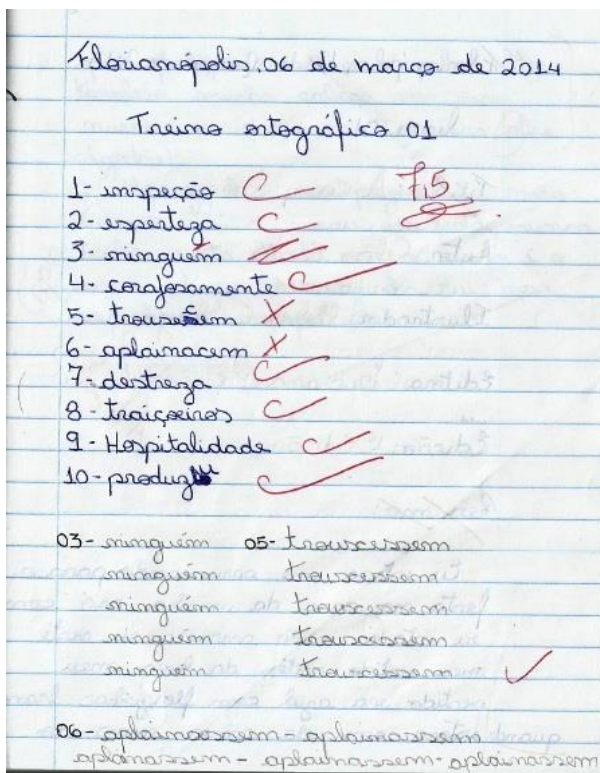 Florianópolis, 06 de março de 2014
Treino ortográfico 01
1- inspeção
7,5
2- esperteza
3- ninguém
4- corajosamente
5-
6- aplainacem
7- destreza
8- traiçoeiros
9- Hospitalidade
10- produziu
03- ninguém 05- trouxessem
ninguém trouxessem
ninguém trouxessem
ninguém trouxessem
ninguém trouxessem
06- aplainassem - aplainassem
aplanassem - aplainassem - aplainassem